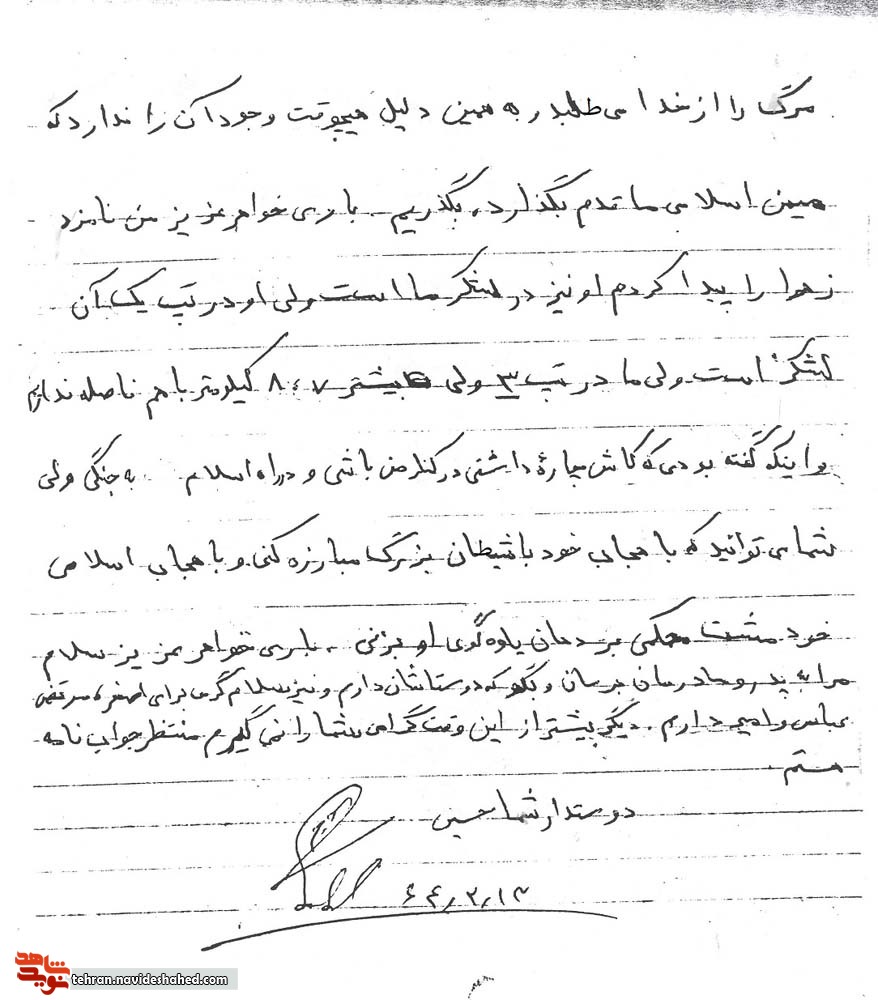 مرگ را از خدا می‌طلبد، به همین دلیل هیچوقت وجود آن را ندارد که
میهن اسلامی ما قدم بگذارد، بگذریم. باری خواهر عزیز من نامزد
زهرا را پیدا کردم او نیز در لشکر ما است ولی او در تپ یک آن
لشکر است ولی ما در تپ ۳ ولی بیشتر ۷، ۸ کیلومتر با هم فاصله نداریم
و اینکه گفته بودی که کاش چارهٔ داشتی در کنار من باشی و در راه اسلام به جنگی ولی
شما می توانید که با حجاب خود با شیطان بزرگ مبارزه کنی و با حجاب اسلامی
خود مشت محکمی بر دهان یاوه گوی او بزنی. باری خواهر عزیز سلام
مرا به پدر و مادرمان برسان و بگو که دوستانشان دارم و نیز سلام گرم برای اصغر، مرتضی
عباس و امیر دارم. دیگر بیشتر از این وقت گرامی شما را نمی گیرم منتظر جواب نامه
هستم.
دوستدار شما حسین
۶۴،۲،۱۳
نوید شاهد
tehran.navideshahed.com